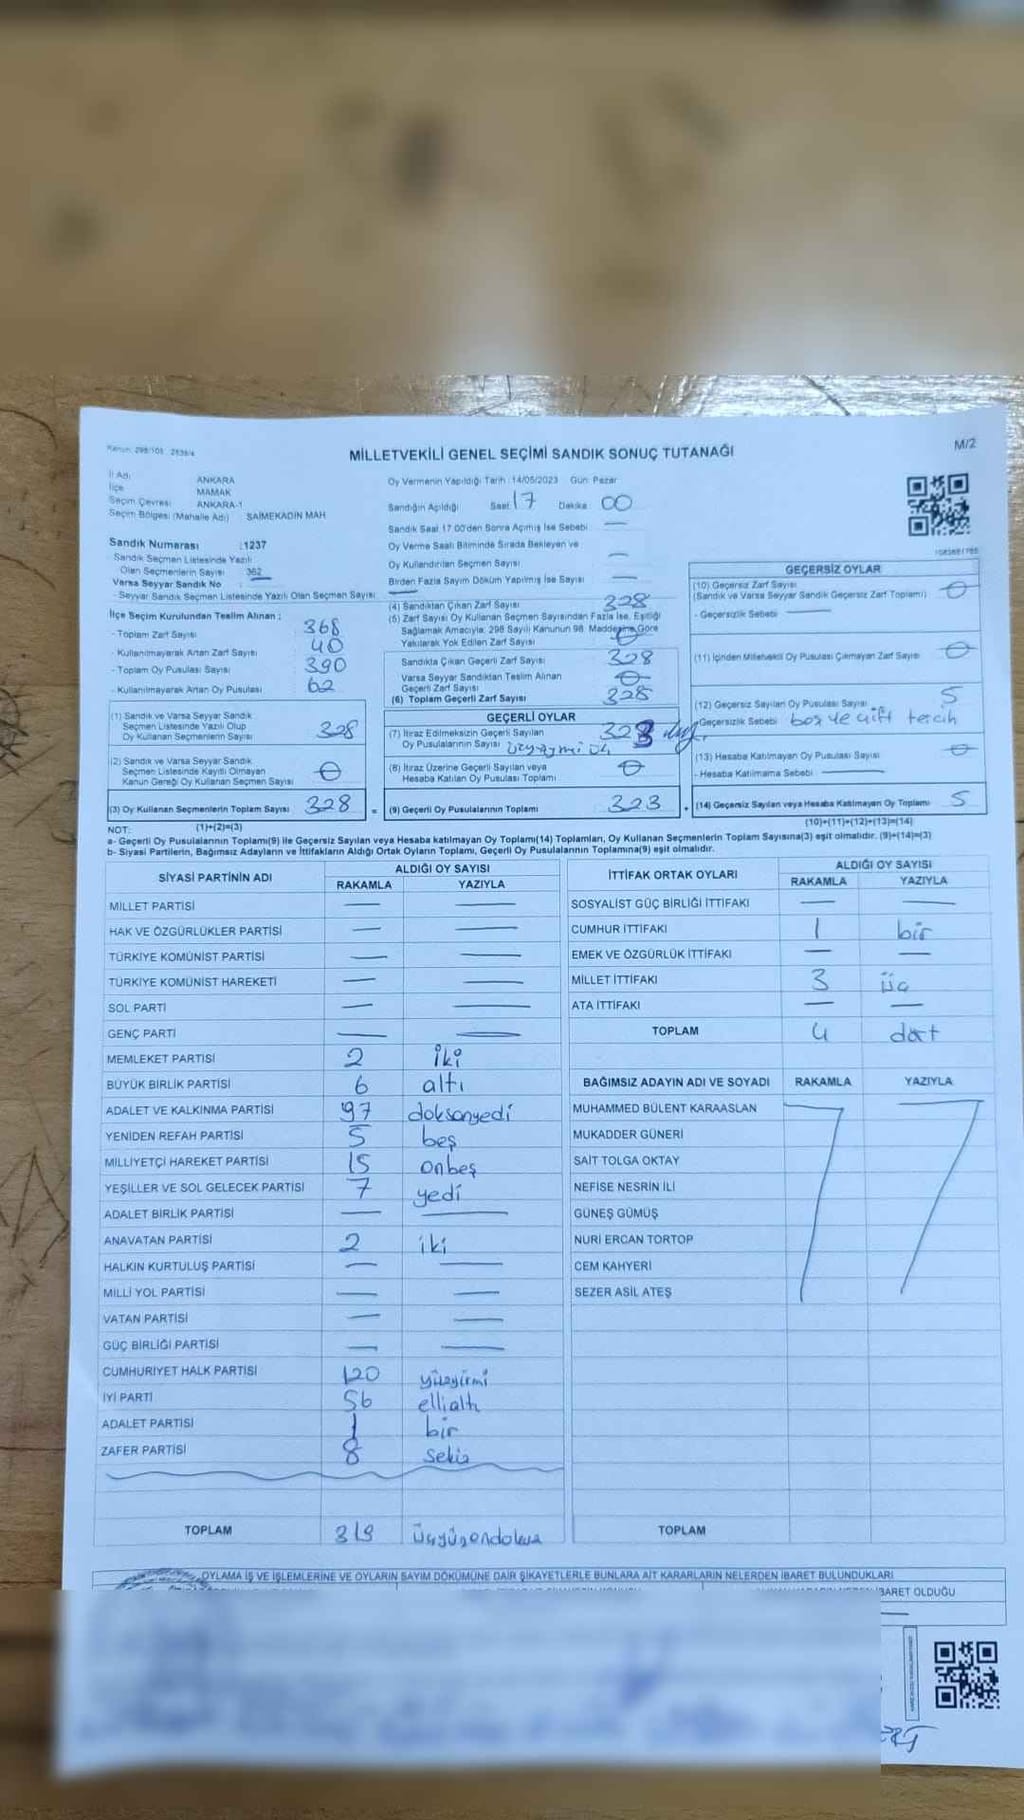 M/2
MİLLETVEKİLİ GENEL SEÇİMİ SANDIK SONUÇ TUTANAĞI
İl Adı ANKARA
İlçe MAMAK
Seçim Çevresi ANKARA-1
Seçim Bölgesi (Mahalle Adı) SAİMEKADIN MAH
Sandık Numarası :1237
Sandık Seçmen Listesinde Yazılı
Olan Seçmenlerin Sayısı 362
Varsa Seyyar Sandık No
- Seyyar Sandık Seçmen Listesinde Yazılı Olan Seçmen Sayısı
İlçe Seçim Kurulundan Teslim Alınan ;
- Toplam Zarf Sayısı 368
- Kullanılmayarak Artan Zarf Sayısı 40
- Toplam Oy Pusulası Sayısı 390
- Kullanılmayarak Artan Oy Pusulası 62
(1) Sandık ve Varsa Seyyar Sandık
Seçmen Listesinde Yazılı Olup
Oy Kullanan Seçmenlerin Sayısı 328
(2) Sandık ve Varsa Seyyar Sandık
Seçmen Listesinde Kayıtlı Olmayan
Kanun Gereği Oy Kullanan Seçmen Sayısı 0
(3) Oy Kullanan Seçmenlerin Toplam Sayısı 328 =
(1)+(2)=(3)
Oy Vermenin Yapıldığı Tarih : 14/05/2023 Gün: Pazar
Sandığın Açıldığı Saat 17 Dakika 00
Sandık Saat 17.00'den Sonra Açılmış İse Sebebi —
Oy Verme Saati Bitiminde Sırada Bekleyen ve
Oy Kullandırılan Seçmen Sayısı —
Birden Fazla Sayım Döküm Yapılmış İse Sayısı —
(4) Sandıktan Çıkan Zarf Sayısı 328
(5) Zarf Sayısı Oy Kullanan Seçmen Sayısından Fazla İse, Eşitliği
Sağlamak Amacıyla; 298 Sayılı Kanunun 98. Maddesine Göre
Yakılarak Yok Edilen Zarf Sayısı 0
Sandıkta Çıkan Geçerli Zarf Sayısı 328
Varsa Seyyar Sandıktan Teslim Alınan
Geçerli Zarf Sayısı 0
(6) Toplam Geçerli Zarf Sayısı 328
GEÇERLİ OYLAR
(7) İtiraz Edilmeksizin Geçerli Sayılan
Oy Pusulalarının Sayısı 323
(8) İtiraz Üzerine Geçerli Sayılan veya
Hesaba Katılan Oy Pusulası Toplamı 0
(9) Geçerli Oy Pusulalarının Toplamı 323 +
GEÇERSİZ OYLAR
(10) Geçersiz Zarf Sayısı
(Sandık ve Varsa Seyyar Sandık Geçersiz Zarf Toplamı) 0
- Geçersizlik Sebebi —
(11) İçinden Milletvekili Oy Pusulası Çıkmayan Zarf Sayısı 0
(12) Geçersiz Sayılan Oy Pusulası Sayısı 5
- Geçersizlik Sebebi boş ve çift tercih
(13) Hesaba Katılmayan Oy Pusulası Sayısı 0
- Hesaba Katılmama Sebebi —
(14) Geçersiz Sayılan veya Hesaba Katılmayan Oy Toplamı 5
(10)+(11)+(12)+(13)=(14)
NOT:
a- Geçerli Oy Pusulalarının Toplamı(9) ile Geçersiz Sayılan veya Hesaba katılmayan Oy Toplam(14) Toplamları, Oy Kullanan Seçmenlerin Toplam Sayısına(3) eşit olmalıdır. (9)+(14)=(3)
b- Siyasi Partilerin, Bağımsız Adayların ve İttifakların Aldığı Ortak Oyların Toplamı, Geçerli Oy Pusulalarının Toplamına(9) eşit olmalıdır.
SİYASİ PARTİNİN ADI ALDIĞI OY SAYISI
RAKAMLA YAZIYLA
MİLLET PARTİSİ — —
HAK VE ÖZGÜRLÜKLER PARTİSİ — —
TÜRKİYE KOMÜNİST PARTİSİ — —
TÜRKİYE KOMÜNİST HAREKETİ — —
SOL PARTİ — —
GENÇ PARTİ — —
MEMLEKET PARTİSİ 2 iki
BÜYÜK BİRLİK PARTİSİ 6 altı
ADALET VE KALKINMA PARTİSİ 97 doksanyedi
YENİDEN REFAH PARTİSİ 5 beş
MİLLİYETÇİ HAREKET PARTİSİ 15 onbeş
YEŞİLLER VE SOL GELECEK PARTİSİ 7 yedi
ADALET BİRLİK PARTİSİ — —
ANAVATAN PARTİSİ 2 iki
HALKIN KURTULUŞ PARTİSİ — —
MİLLİ YOL PARTİSİ — —
VATAN PARTİSİ — —
GÜÇ BİRLİĞİ PARTİSİ — —
CUMHURİYET HALK PARTİSİ 120 yüzyirmi
İYİ PARTİ 56 ellialtı
ADALET PARTİSİ 1 bir
ZAFER PARTİSİ 8 sekiz
TOPLAM 319 üçyüzondokuz
İTTİFAK ORTAK OYLARI ALDIĞI OY SAYISI
RAKAMLA YAZIYLA
SOSYALİST GÜÇ BİRLİĞİ İTTİFAKI — —
CUMHUR İTTİFAKI 1 bir
EMEK VE ÖZGÜRLÜK İTTİFAKI — —
MİLLET İTTİFAKI 3 üç
ATA İTTİFAKI — —
TOPLAM 4 dört
BAĞIMSIZ ADAYIN ADI VE SOYADI RAKAMLA YAZIYLA
MUHAMMED BÜLENT KARAASLAN
MUKADDER GÜNERİ
SAİT TOLGA OKTAY
NEFİSE NESRİN İLİ
GÜNEŞ GÜMÜŞ
NURİ ERCAN TORTOP
CEM KAHYERİ
SEZER ASİL ATEŞ
TOPLAM
OYLAMA İŞ VE İŞLEMLERİNE VE OYLARIN SAYIM DÖKÜMÜNE DAİR ŞİKAYETLERLE BUNLARA AİT KARARLARIN NELERDEN İBARET BULUNDUKLARI
İBARET OLDUĞU